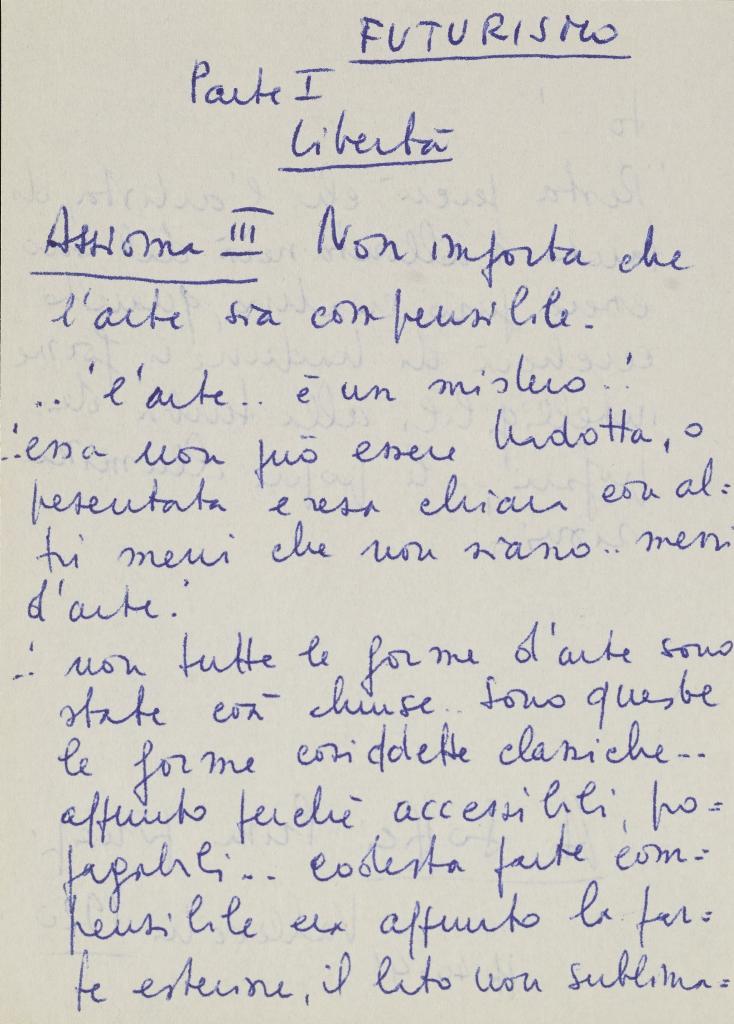 FUTURISMO
Parte I
Libertà
Assioma III Non importa che
l'arte sia compensibile.
..'l'arte.. è un mistero..'
..'essa non può essere tradotta, o
presentata e resa chiara con al=
tri mezzi che non siano.. mezzi
d'arte.'
..' non tutte le forme d'arte sono
state così chiuse.. Sono queste
le forme cosiddette classiche...
appunto perchè accessibili, po=
pagabili... codesta parte com=
pensibile era appunto la par=
te esteriore, il lato non sublima=